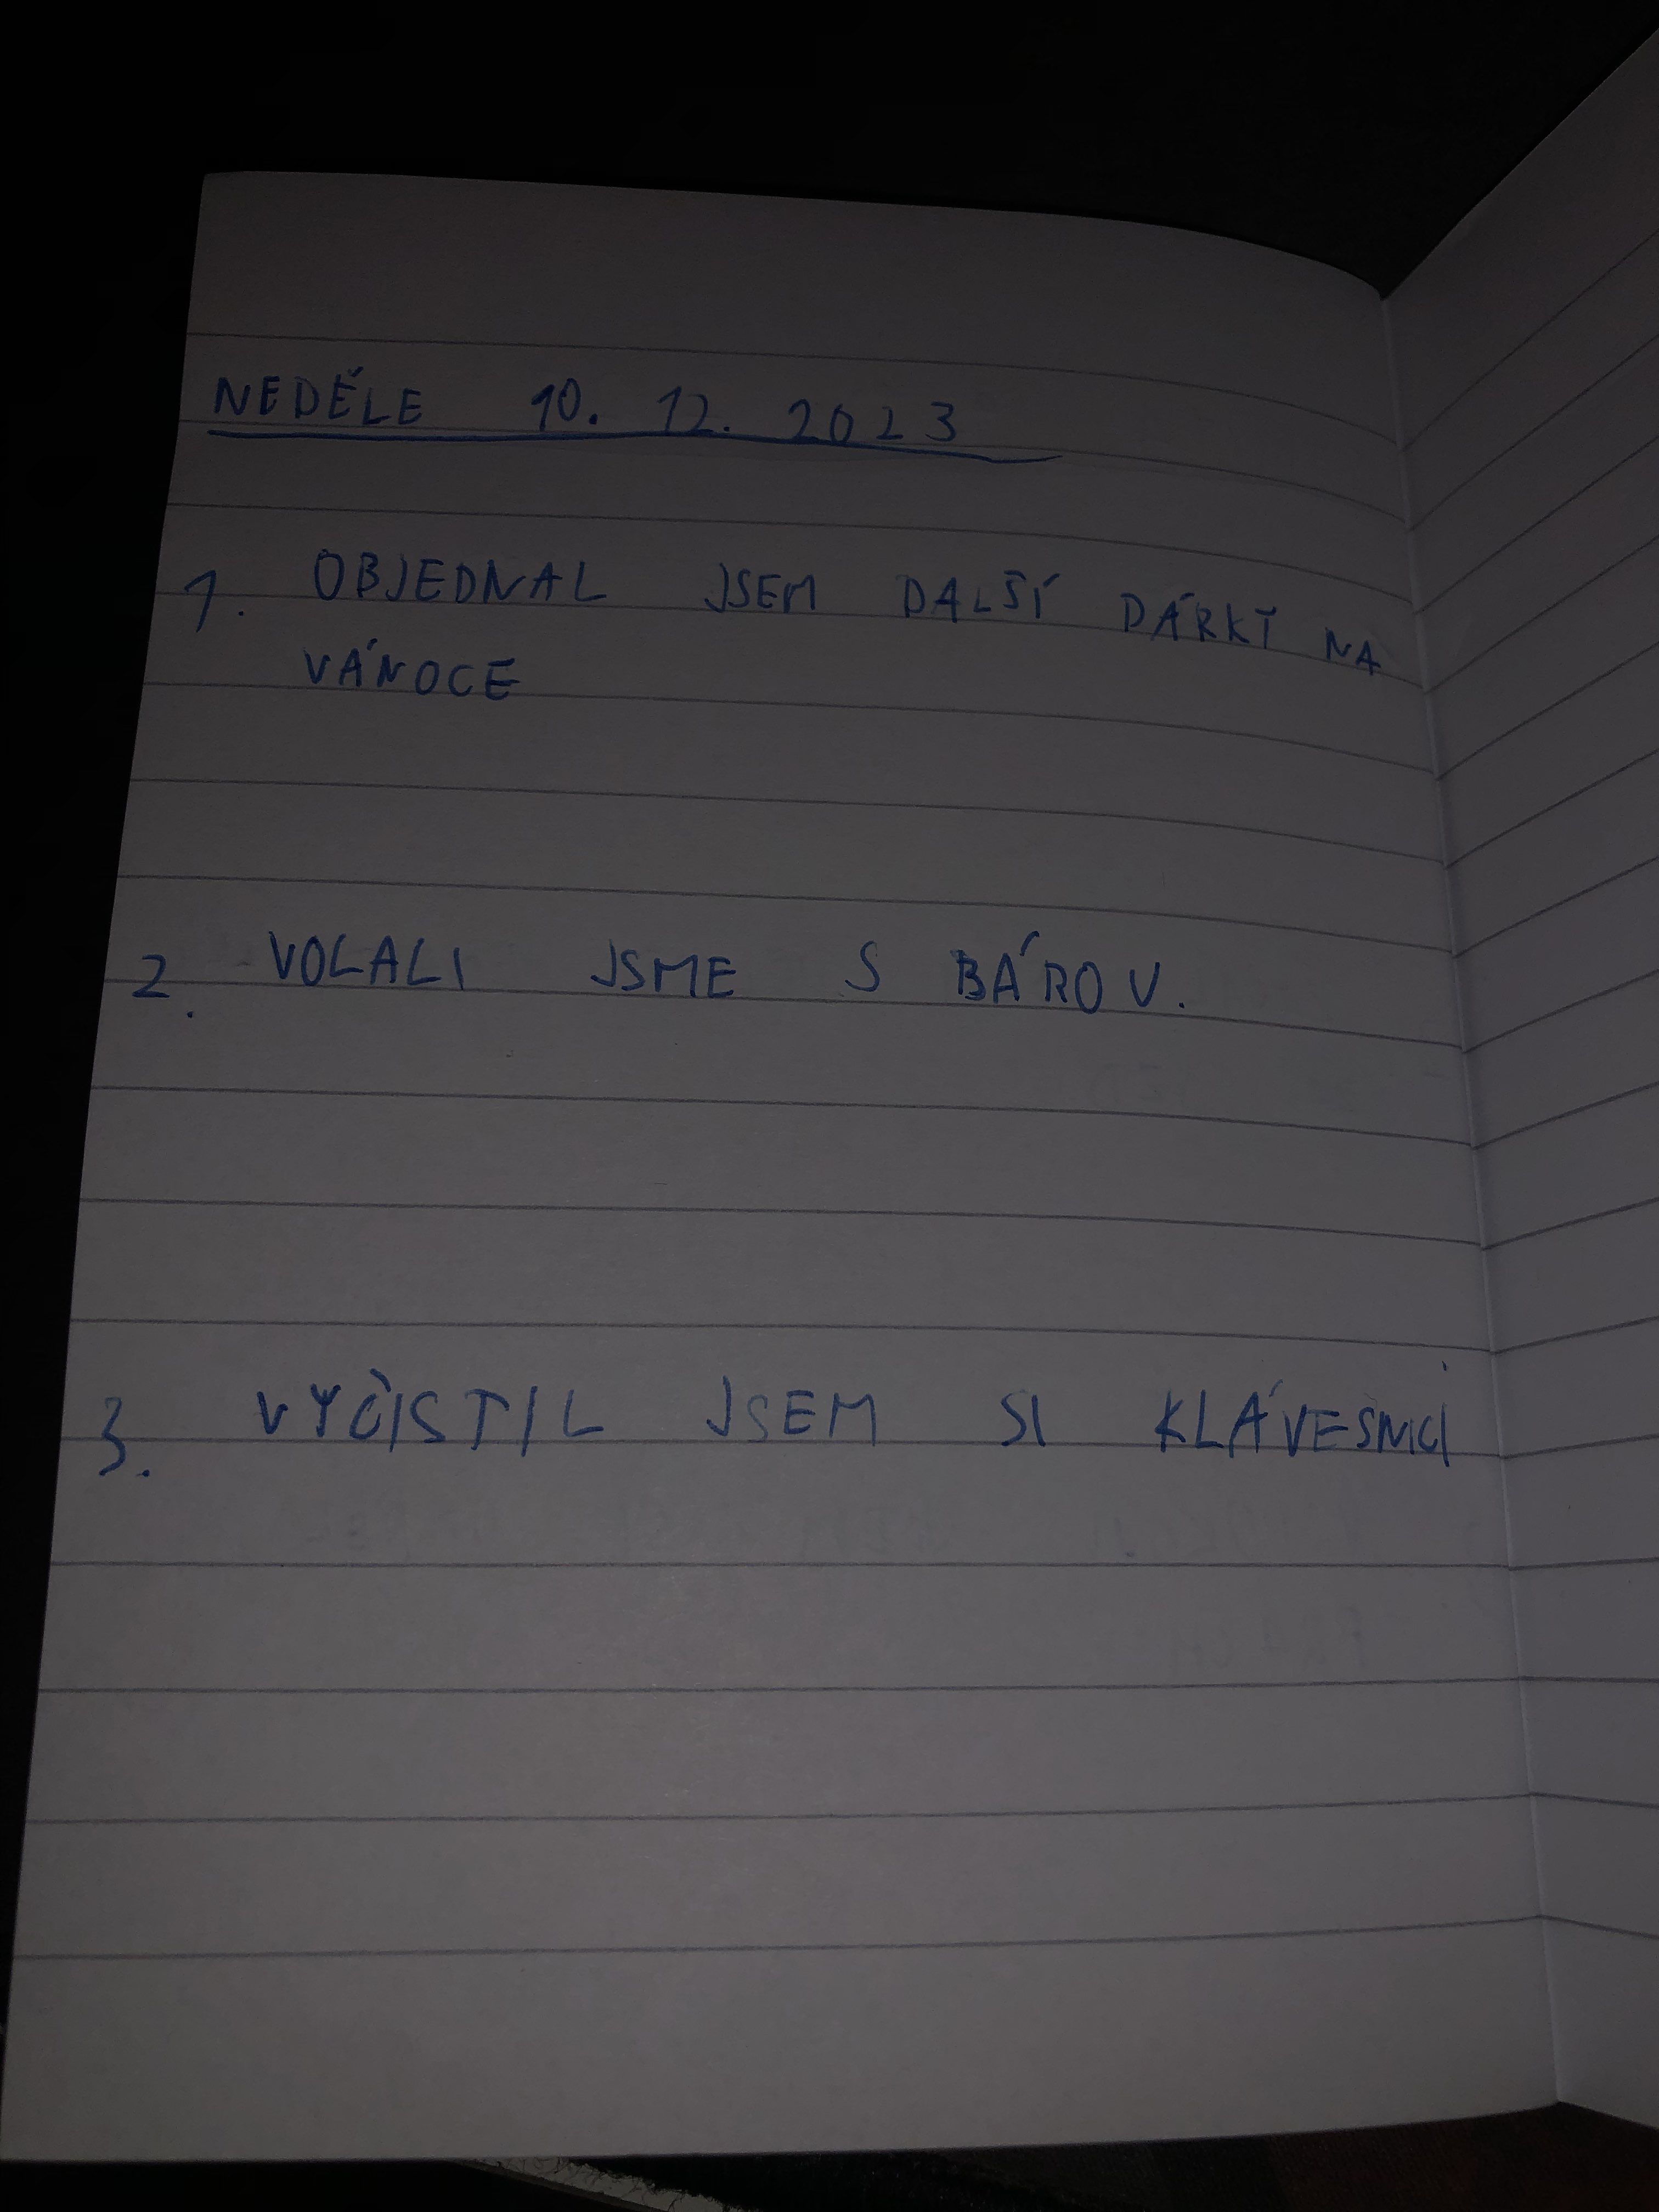 NEDĚLE 10. 12. 2023
1. OBJEDNAL JSEM DALŠÍ DÁRKY NA
VÁNOCE
2. VOLALI JSME S BÁROU.
3. VYČISTIL JSEM SI KLÁVESNICI